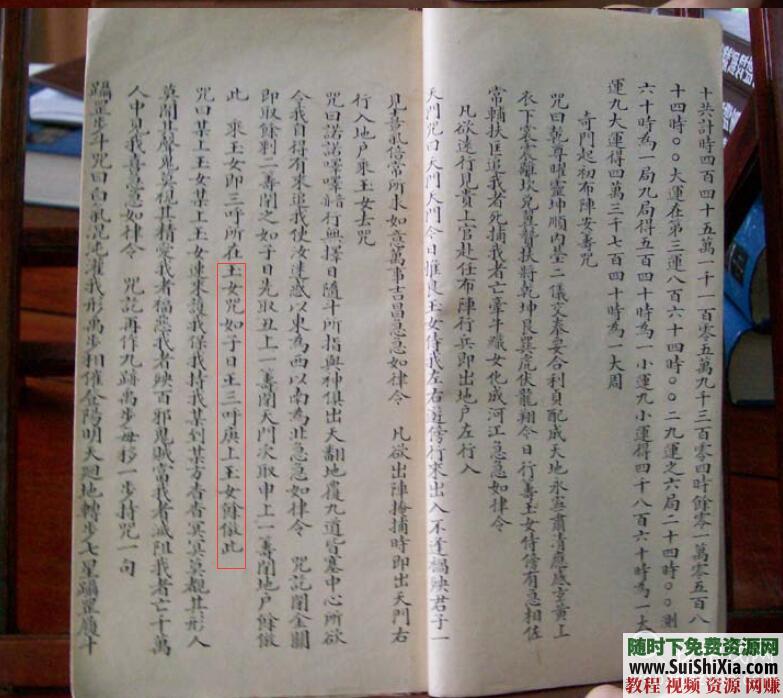 十共計時四百四十五萬一千一百零五萬九千三百零四時餘零一萬零五百八
十四時○○大運在第三運八百六十四時○○二九運之六局二十四時○○測
六十時為一局九局得五百四十時為一小運九小運得四千八百六十時為一大
運九大運得四萬三千七百四十時為一大周
奇門起初布陣安壽咒
咒曰乾尊曜靈坤順內營二儀交泰要合利貞配成天地永寧肅清應感玄黄上
衣下裳震離坎兌贊扶將乾坤艮巽虎伏龍翔今日行壽玉女侍傍有急相佐
常輔扶匡追我者死捕我者亡牽牛織女化成河江急急如律令
凡欲遠行見貴上官赴任布陣行兵即出地戶左行入
天門咒曰天門天門今日推良玉女侍我左右道傍行來出入不逢禍殃君子一
見喜信常所求如意萬事吉昌急急如律令 凡欲出陣掩捕時即出天門右
行入地戶乘玉女去咒
咒曰諾諾嚊嚊行無擇日隨斗所指與神俱出天翻地覆九道皆塞中心所欲
令我自得有來追我使汝迷惑以東為西以南為北急急如律令 咒訖閉金關
即取餘剩二壽閉之如子日先取丑上一壽閉天門次取申上一壽閉地戶餘倣
此 乘玉女即三呼所在玉女咒如子日三呼庚上玉女餘倣此
咒曰某上玉女某上玉女速來護我保我持我某到某方杳杳冥冥莫覩其形人
莫聞其聲鬼莫視其精愛我者福惡我者殃百邪鬼賊當我者滅阻我者亡千萬
人中見我喜急如律令 咒訖再作九跡萬步每移一步持咒一句
躡罡步斗咒曰白氣混沌灌我形禹步相催登陽明天迴地轉步七星躡罡履斗
随时下免费资源网
www.SuiShiXia.com
教程 视频 资源 网赚